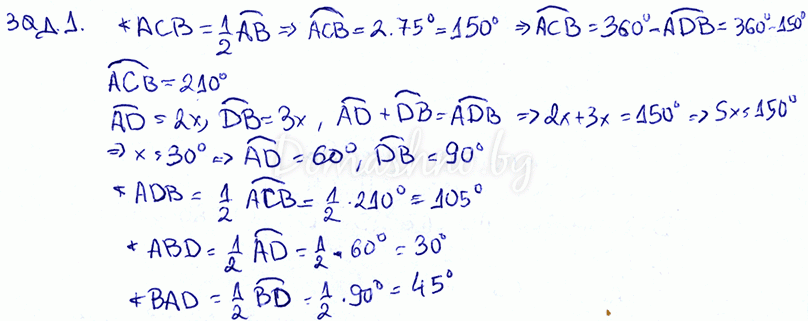 Зад.1. ∢ACB = 1/2 A͡B => A͡CB = 2.75° = 150° => A͡CB = 360° - A͡DB = 360° - 150°
A͡CB = 210°
A͡D = 2x, D͡B = 3x, A͡D + D͡B = A͡DB => 2x + 3x = 150° => 5x = 150°
=> x = 30° => A͡D = 60°, D͡B = 90°
Domashni.bg
∢ADB = 1/2 A͡CB = 1/2 . 210° = 105°
∢ABD = 1/2 A͡D = 1/2 . 60° = 30°
∢BAD = 1/2 B͡D = 1/2 . 90° = 45°